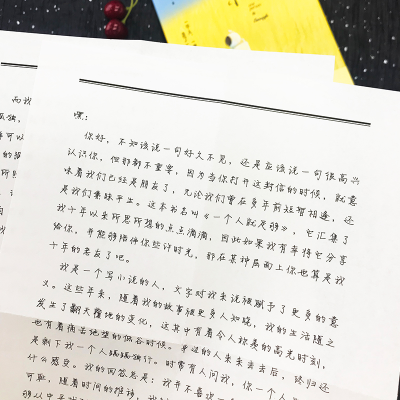 嘿：
你好，不知该说一句好久不见，还是应该说一句很高兴
认识你，但那都不重要，因为当你打开这封信的时候，就意
味着我们已经是朋友了，无论我们曾在多年前短暂相逢，还
是我们素昧平生。这本书名叫《一个人就是够》，它汇集了
我十年以来所思所想的点点滴滴，因此如果我有幸将它分享
给你，并能够陪伴你些许时光，那在某种层面上你也算是我
十年的老友了吧。
我是一个写小说的人，文字对我来说被赋予了更多的意
义。这些年来，随着我的故事被更多人知晓，我的生活随之
发生了翻天覆地的变化，这其中有着令人称羡的高光时刻，
也有着痛苦绝望的低谷时候。身边的人来来去去后，终归还
是剩下我一个人踽踽独行。时常有人问我，你一个人
什么感受。我的回答总是：我并不喜欢一
可耻，随着时间的推移，我
而我
孤独，
可以
的
所